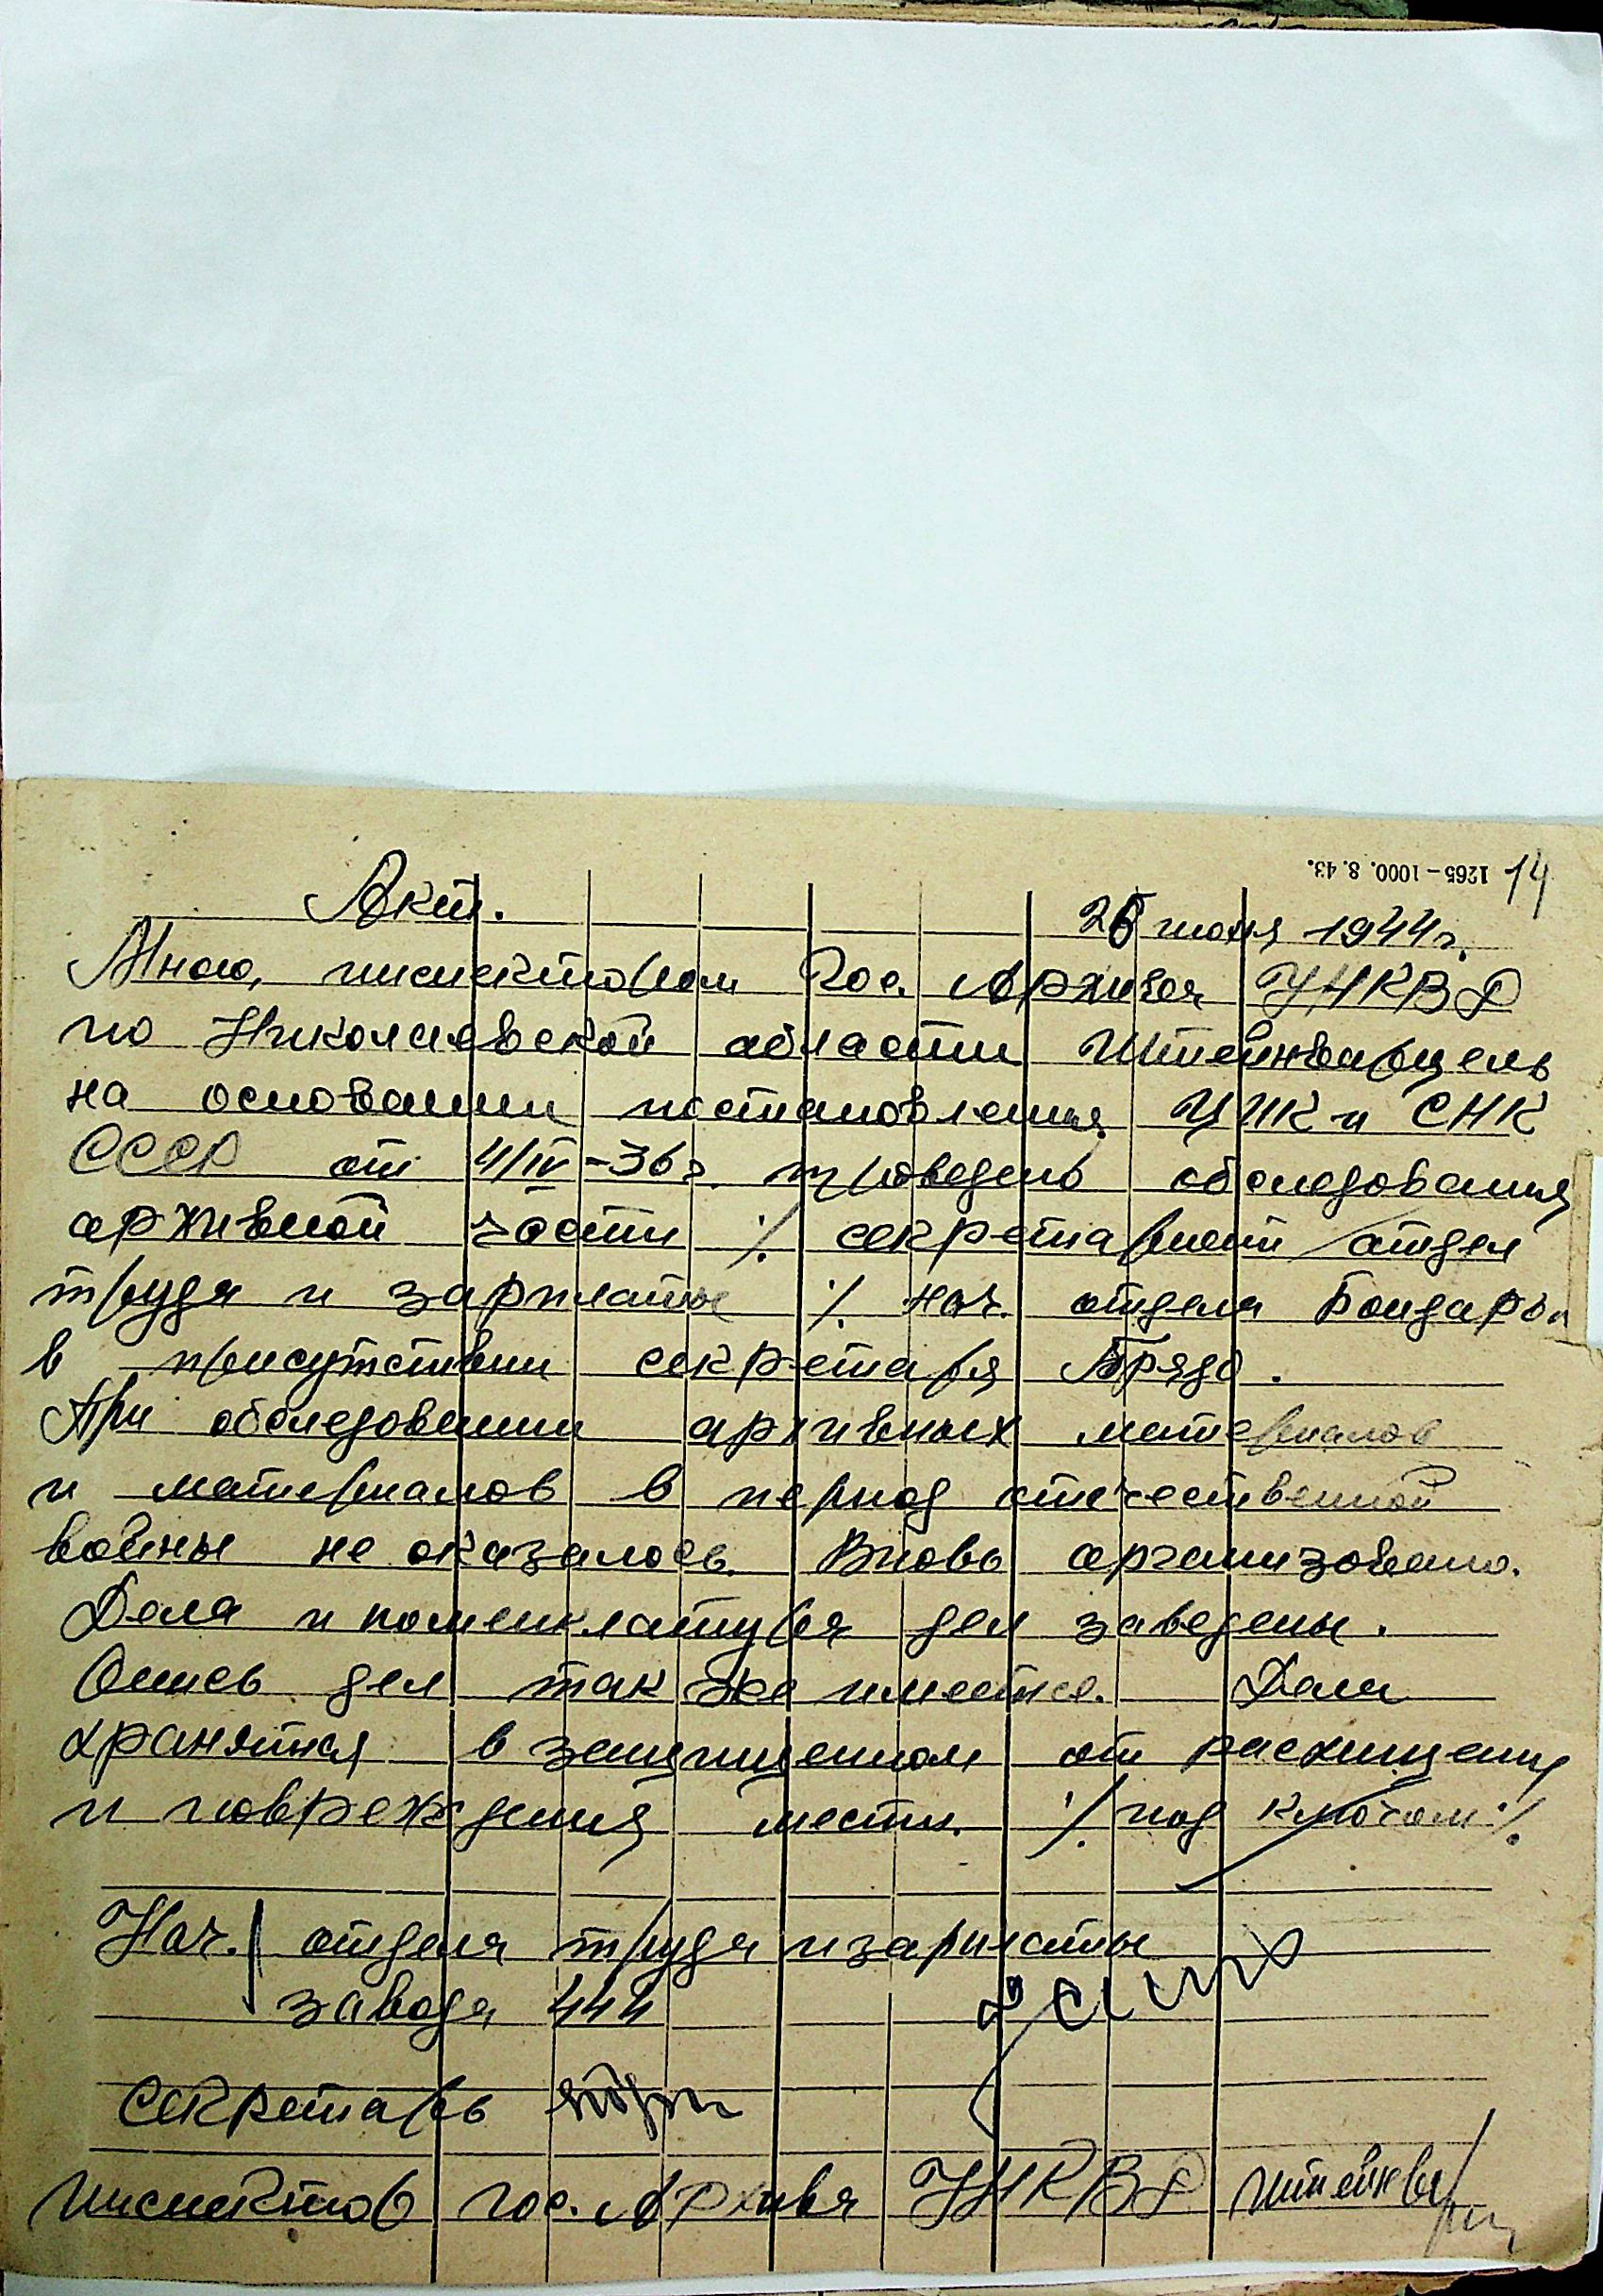 1265–1000. 8. 43. 14
Акт.
26 июня 1944г.
Мною, инспектором Гос. Архива УНКВД
по Николаевской области Штейнварцель
на основании постановления ЦИК и СНК
СССР от 4/IV–36г. проведено обследования
архивной части ·/. секретариат отдел
труда и зарплаты ·/. нач. отдела Бондарь
в присутствии секретаря
При обследовании архивных материалов
и материалов в период отечественной
войны не оказалось. Вновь организовано.
Дела и номенклатура дел заведены.
Опись дел так же имеется. Дела
хранятся в защищенном от расхищения
и повреждения месте. ·/. под ключом ·/.
Нач. отдела труда и зарплаты
завода 444
Секретарь
Инспектор гос. Архива УНКВД